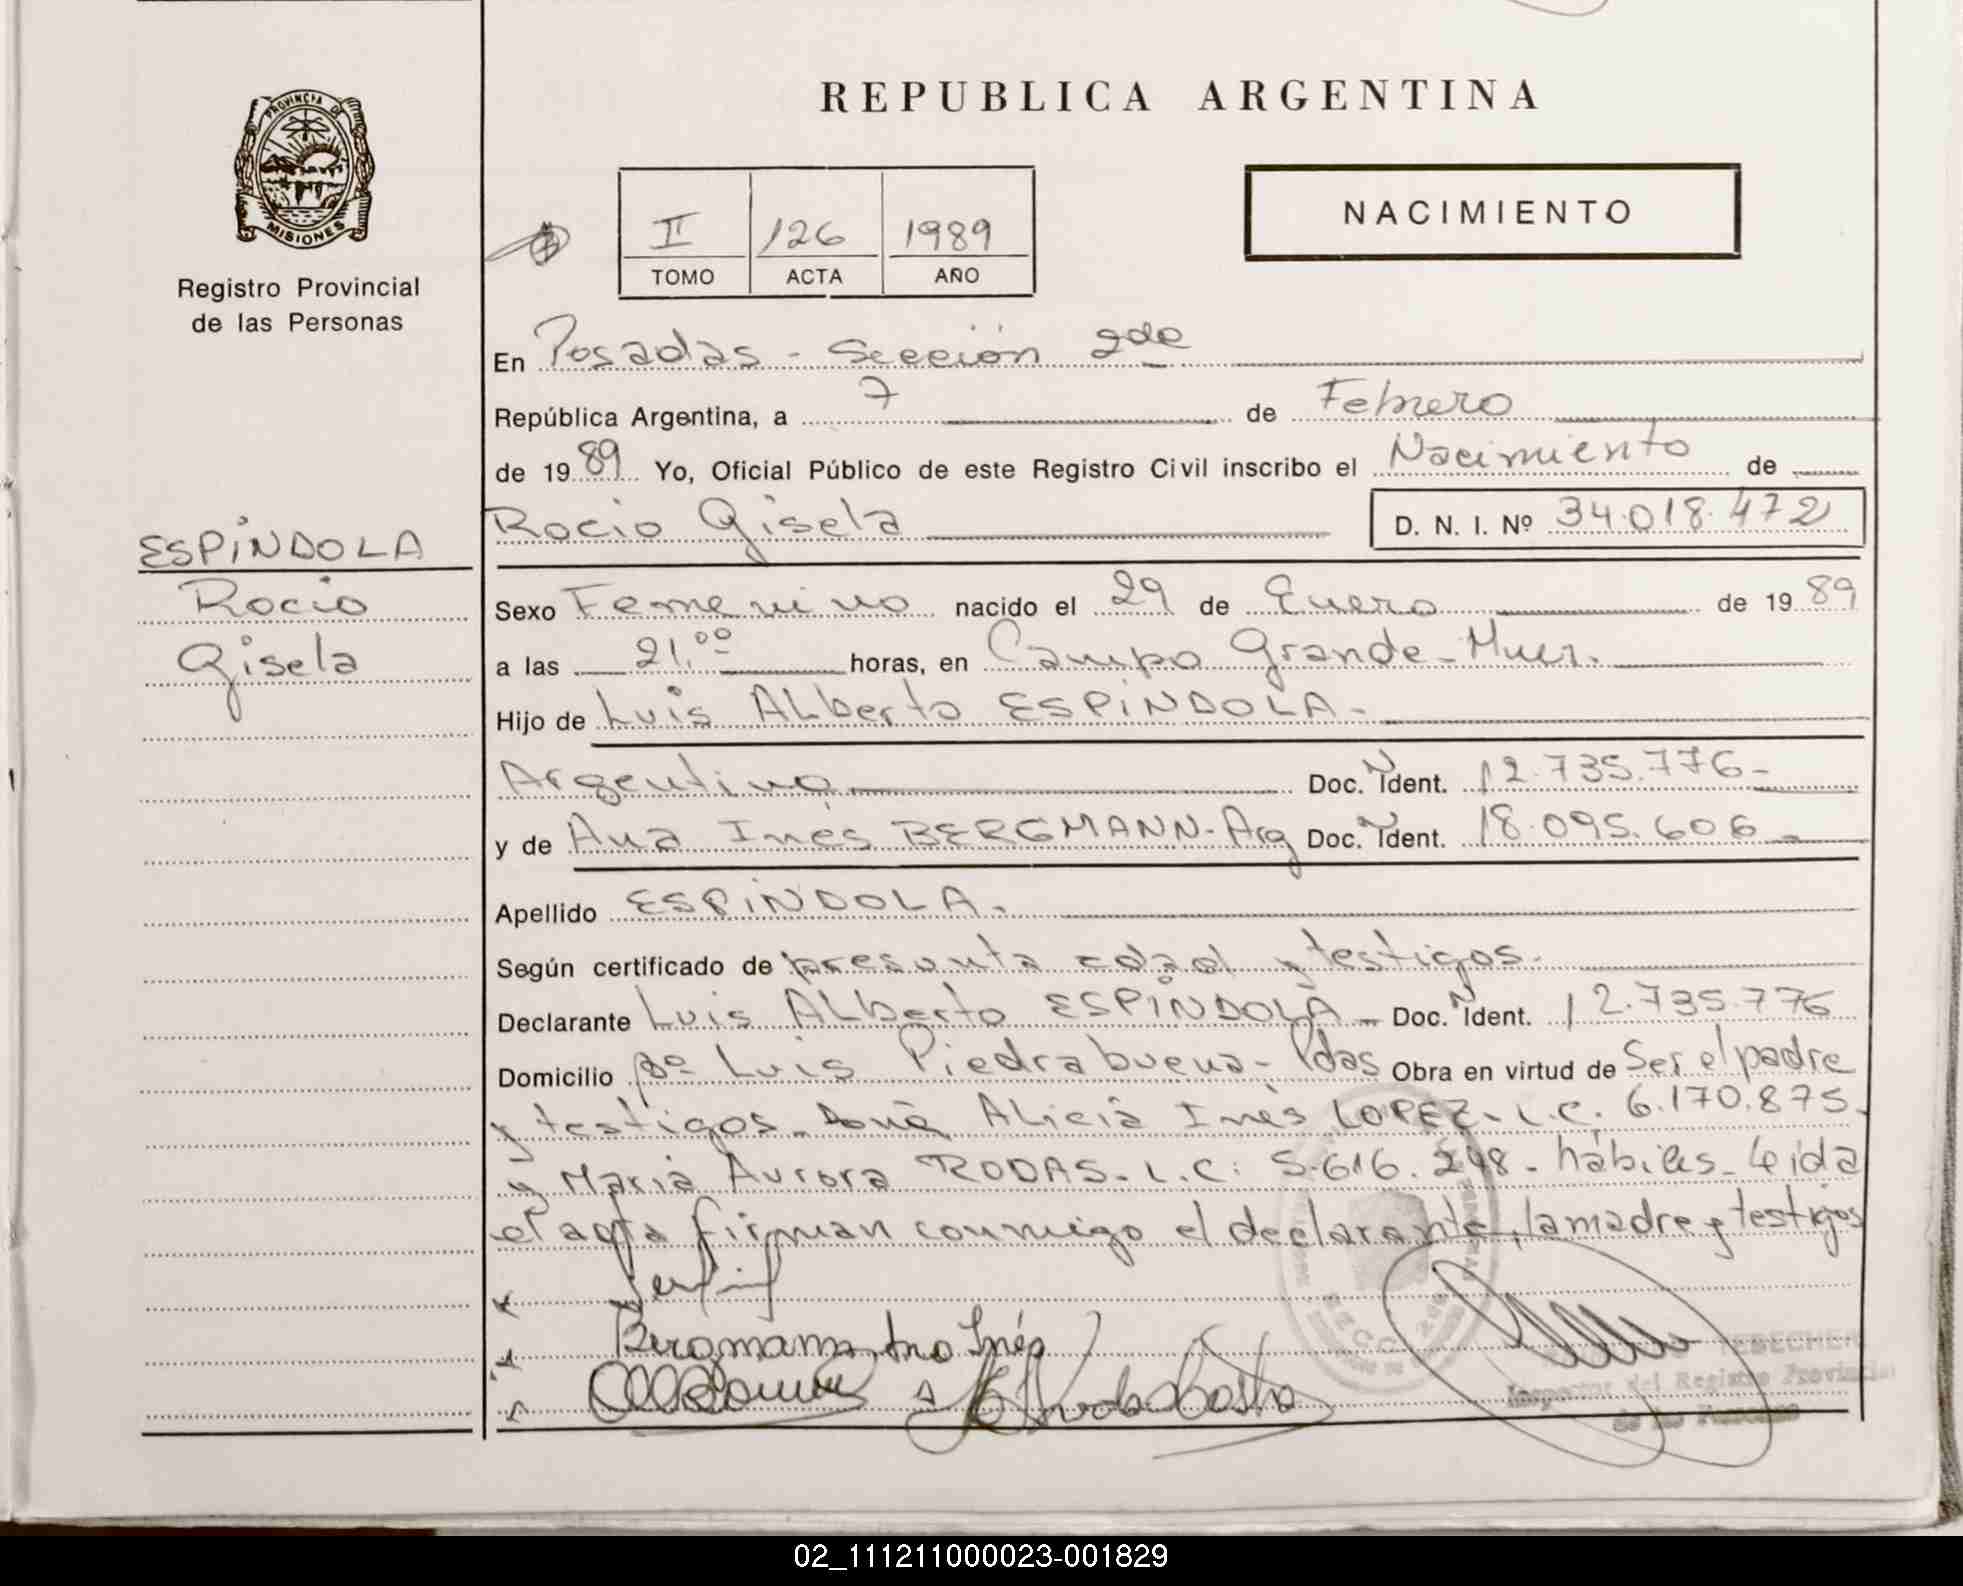 REPUBLICA ARGENTINA
PROVINCIA DE
MISIONES
Registro Provincial
de las Personas
II 126 1989
TOMO ACTA AÑO
NACIMIENTO
En Posadas - Sección 2da
República Argentina, a 7 de Febrero
de 1989 Yo, Oficial Público de este Registro Civil inscribo el Nacimiento de
Rocio Gisela D. N. I. Nº 34.018.472
ESPíNDOLA
Rocio
Gisela
Sexo Femenino nacido el 29 de Enero de 1989
a las 21.00 horas, en Campo Grande - Mnes.
Hijo de Luis Alberto ESPíNDOLA -
Argentino Doc. Ident. 12.735.776 -
y de Ana Inés BERGMANN - Arg Doc. Ident. 18.095.606 -
Apellido ESPíNDOLA.
Según certificado de presunta edad y testigos.
Declarante Luis Alberto ESPíNDOLA - Doc. Ident. 12.735.776
Domicilio Bº Luis Piedrabuena - Pdas Obra en virtud de Ser el padre
y testigos - Doña Alicia Inés LOPEZ - L.C. 6.170.875 -
y María Aurora RODAS - L.C: 5.616.248 - hábiles - Leida
el acta firman conmigo el declarante, la madre y testigos
Bergmann Ana Inés
Inspector del Registro Provincial
de las Personas
02_111211000023-001829